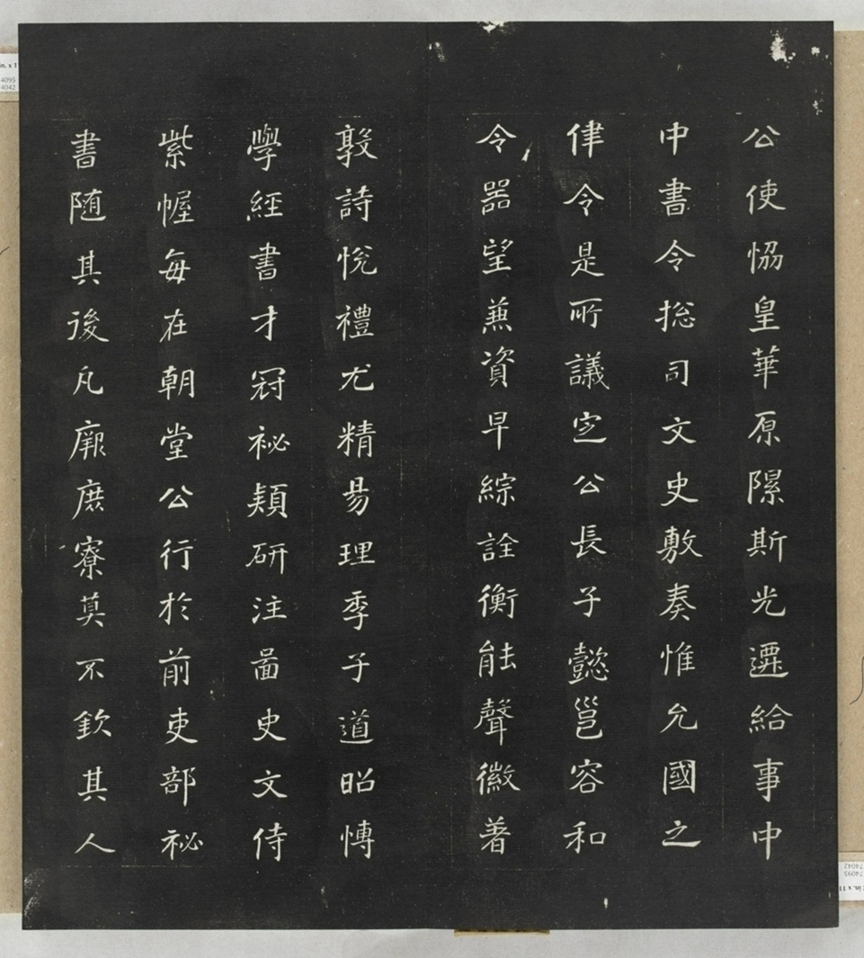 公使恊皇華原隰斯光遷給事中
中書令捴司文史敷奏惟允國之
律令是所議定公長子懿邕容和
令器望兼資早綜詮衡能聲徽著
敦詩悅禮尤精昜理季子道昭慱
學經書才冠祕頴研注啚史文侍
紫幄每在朝堂公行於前吏部祕
書随其後凡廊庶寮莫不欽其人